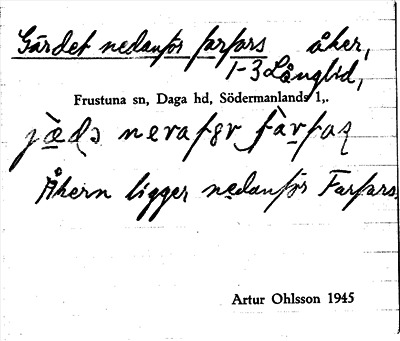 Gärdet nedanför farfars åker,
1-3 Långlid,
Frustuna sn, Daga hd, Södermanlands l,.
nerafør farfaʂ
Åkern ligger nedanför Farfars.
Artur Ohlsson 1945